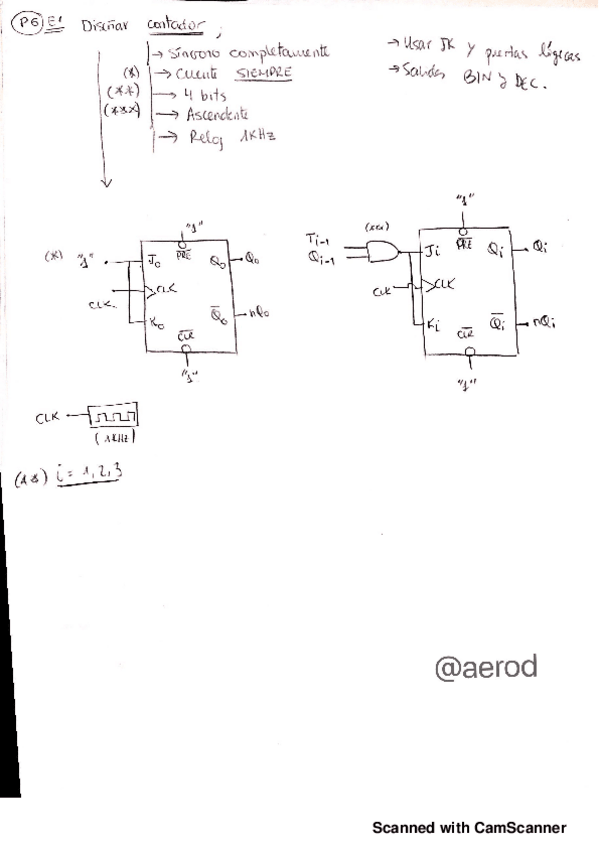 P6 E1 Diseñar contador;
→ Síncrono completamente
(*) → Cuente SIEMPRE
(**) → 4 bits
(***) → Ascendente
→ Reloj 1KHz
→ Usar JK y puertas lógicas
→ Salidas BIN y DEC.
"1"
(*) "1" J0 PRE Q0 Q0
CLK. CLK
K0 CLR Q0 nQ0
"1"
"1"
Ti-1 (***) Ji PRE Qi Qi
Qi-1
CLK CLK
Ki CLR Qi nQi
"1"
CLK
(1KHz)
(**) i = 1, 2, 3
@aerod
Scanned with CamScanner